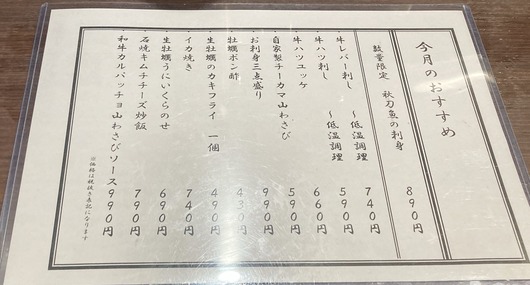 今月のおすすめ
数量限定 秋刀魚の刺身 890円
・牛レバー刺し ～低温調理 740円
・牛ハツ刺し ～低温調理 590円
・牛ハツユッケ 660円
・自家製チーカマ山わさび 590円
・お刺身三点盛り 990円
・牡蠣ポン酢 430円
・生牡蠣のカキフライ 一個 490円
・イカ焼き 740円
・生牡蠣うにいくらのせ 690円
・石焼キムチチーズ炒飯 790円
・和牛カルパッチョ山わさびソース 990円
※価格は税抜き表記になります